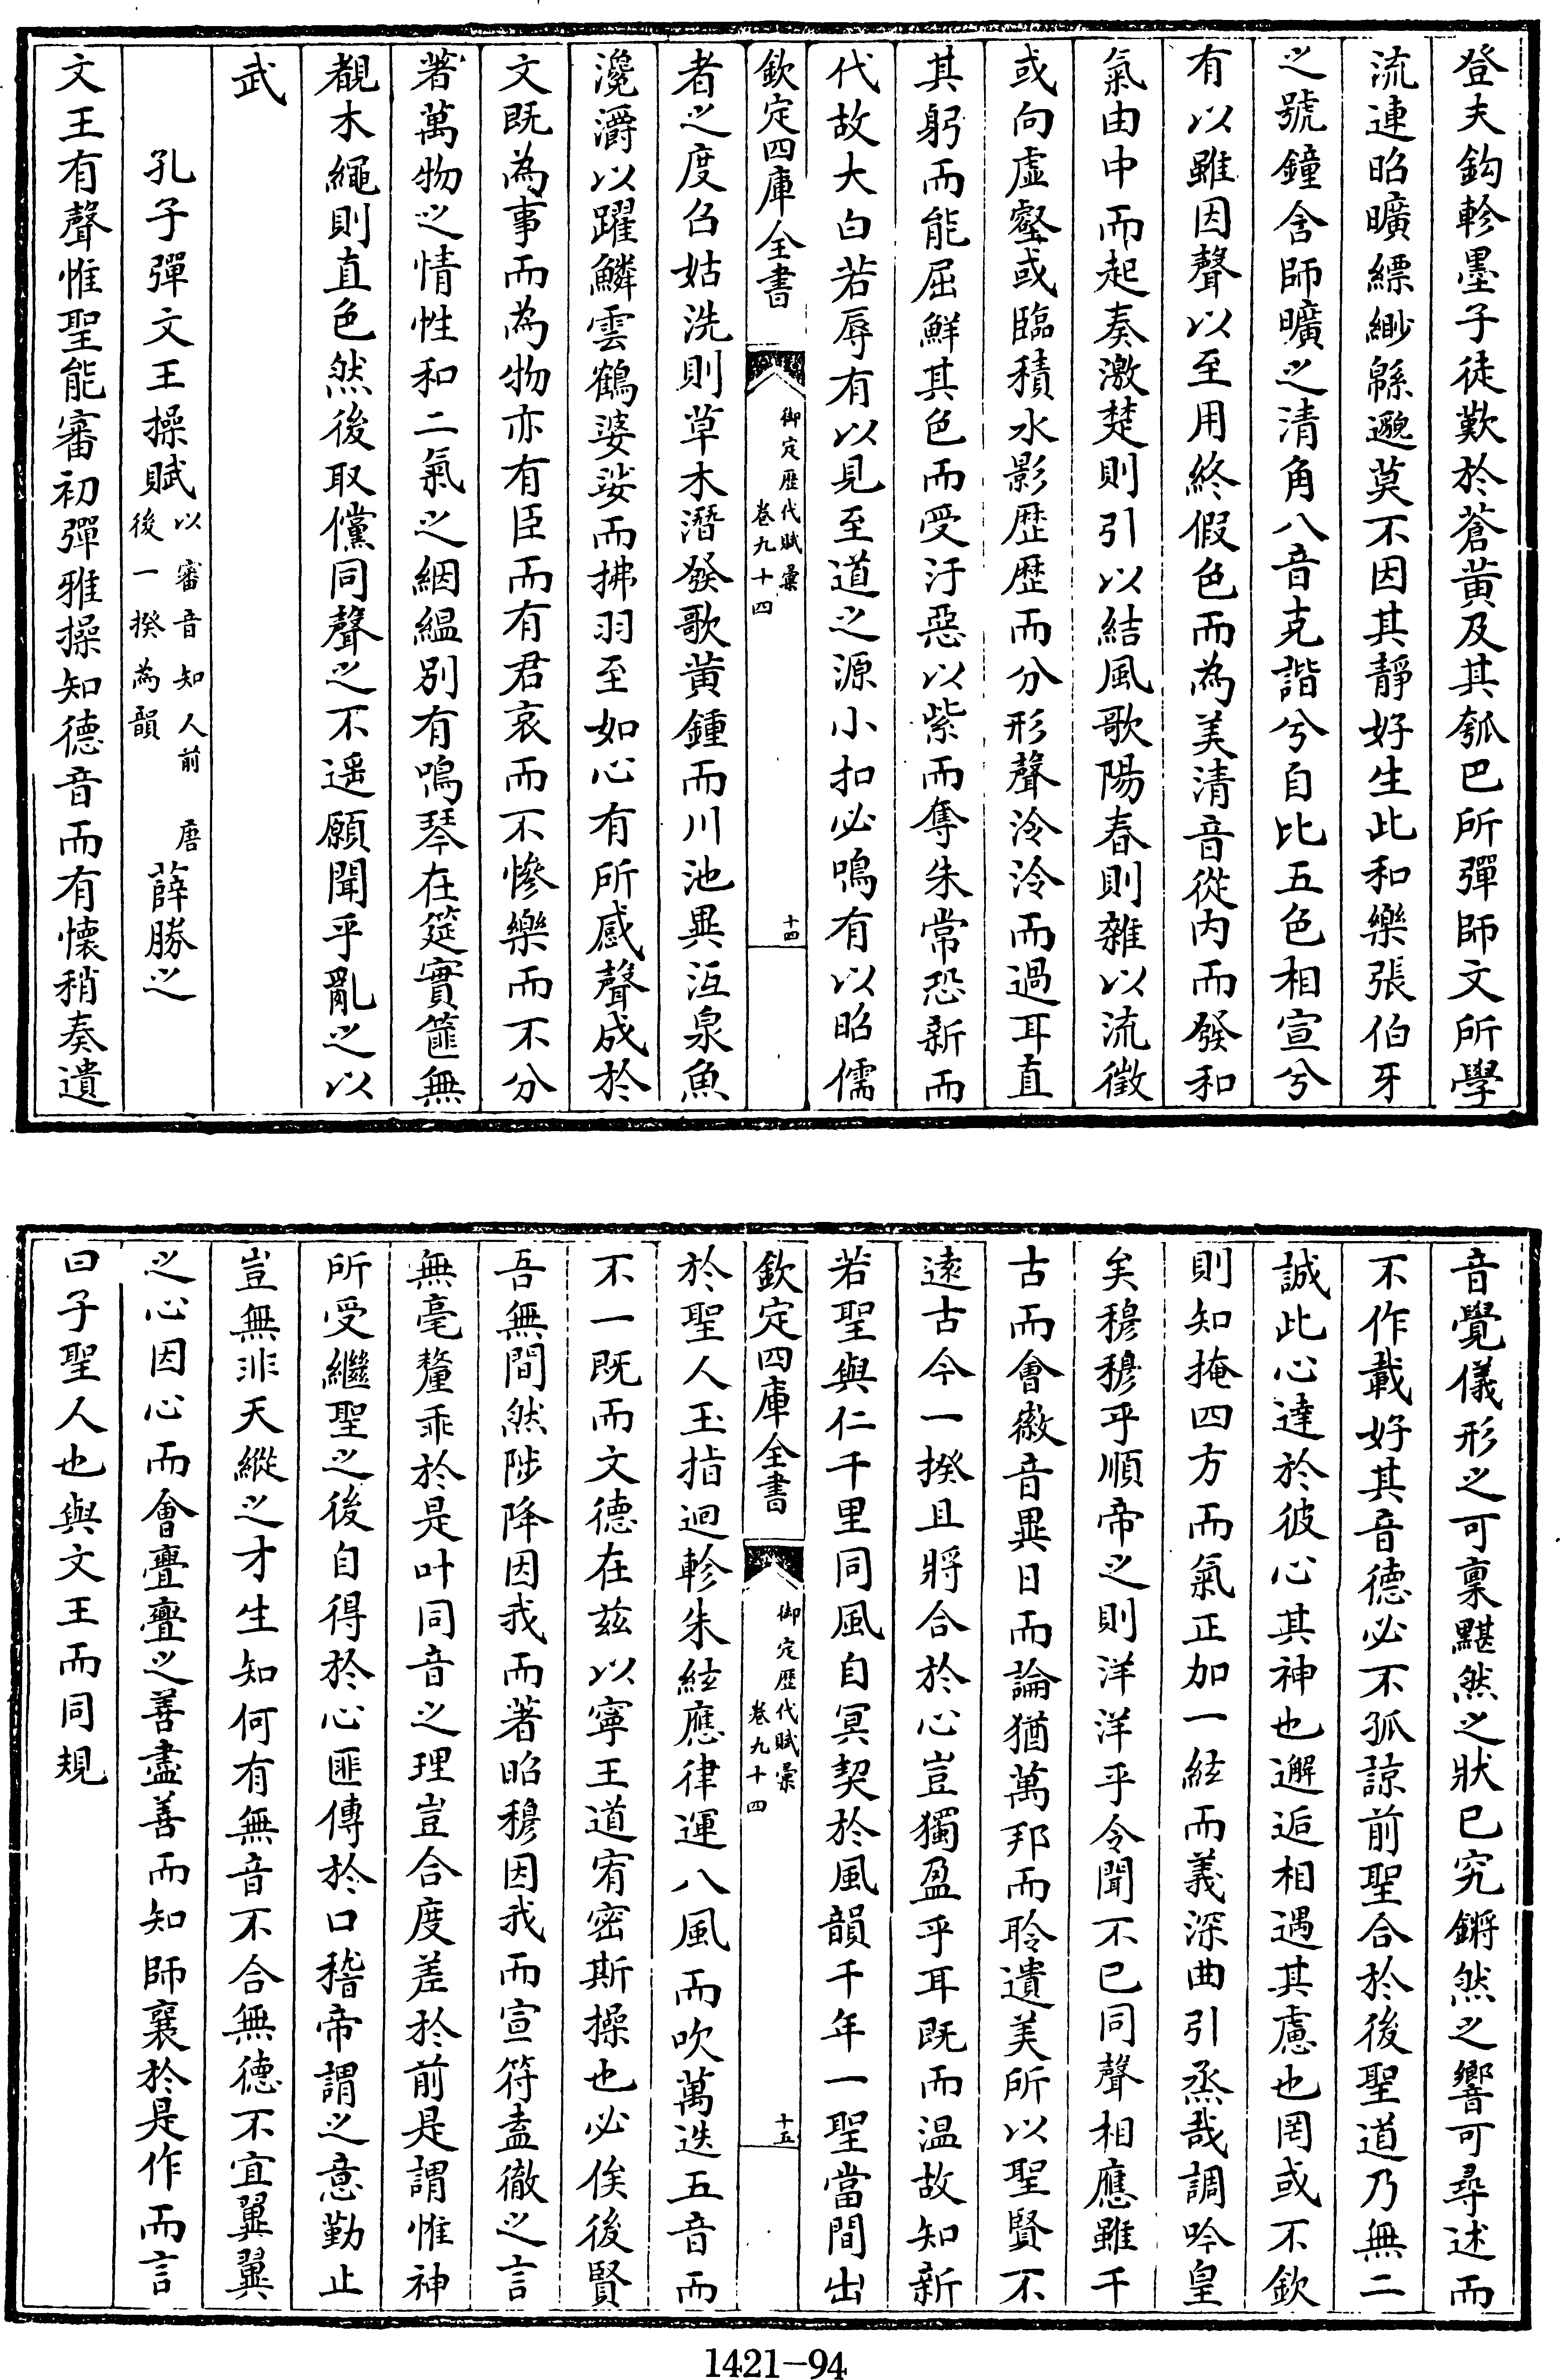 登夫鈎軫墨子徒歎於蒼黄及其瓠巴所彈師文所學
流連昭曠縹緲緜邈莫不因其靜好生此和樂張伯牙
之號鐘含師曠之清角八音克諧兮自比五色相宣兮
有以雖因聲以至用終假色而為美清音從内而發和
氣由中而起奏激楚則引以結風歌陽春則雜以流徵
或向虛壑或臨積水影歴歴而分形聲泠泠而過耳直
其躬而能屈鮮其色而受汙惡以紫而奪朱常恐新而
代故大白若辱有以見至道之源小扣必鳴有以昭儒
欽定四庫全書
御定歴代賦彙
卷九十四
十四
者之度召姑洗則草木潛發歌黄鍾而川池異沍泉魚
瀺灂以躍鱗雲鶴婆娑而拂羽至如心有所感聲成於
文既為事而為物亦有臣而有君哀而不慘樂而不分
著萬物之情性和二氣之絪緼別有鳴琴在筵實篚無
覩木繩則直色然後取儻同聲之不遥願聞乎亂之以
武
孔子彈文王操賦
以審音知人前
後一揆為韻
唐
薛勝之
文王有聲惟聖能審初彈雅操知德音而有懷稍奏遺
音覺儀形之可稟黮然之狀已究鏘然之響可尋述而
不作載好其音德必不孤諒前聖合於後聖道乃無二
誠此心達於彼心其神也邂逅相遇其慮也罔或不欽
則知掩四方而氣正加一絃而義深曲引烝哉調吟皇
矣穆穆乎順帝之則洋洋乎令聞不已同聲相應雖千
古而會徽音異日而論猶萬邦而聆遺美所以聖賢不
遠古今一揆且將合於心豈獨盈乎耳既而温故知新
若聖與仁千里同風自冥契於風韻千年一聖當間出
欽定四庫全書
御定歴代賦彙
卷九十四
十五
於聖人玉指迴軫朱絃應律運八風而吹萬迭五音而
不一既而文德在兹以寧王道宥密斯操也必俟後賢
吾無間然陟降因我而著昭穆因我而宣符盍徹之言
無毫釐乖於是叶同音之理豈合度差於前是謂惟神
所受繼聖之後自得於心匪傳於口稽帝謂之意勤止
豈無非天縱之才生知何有無音不合無德不宜翼翼
之心因心而會亹亹之善盡善而知師襄於是作而言
曰子聖人也與文王而同規
1421-94